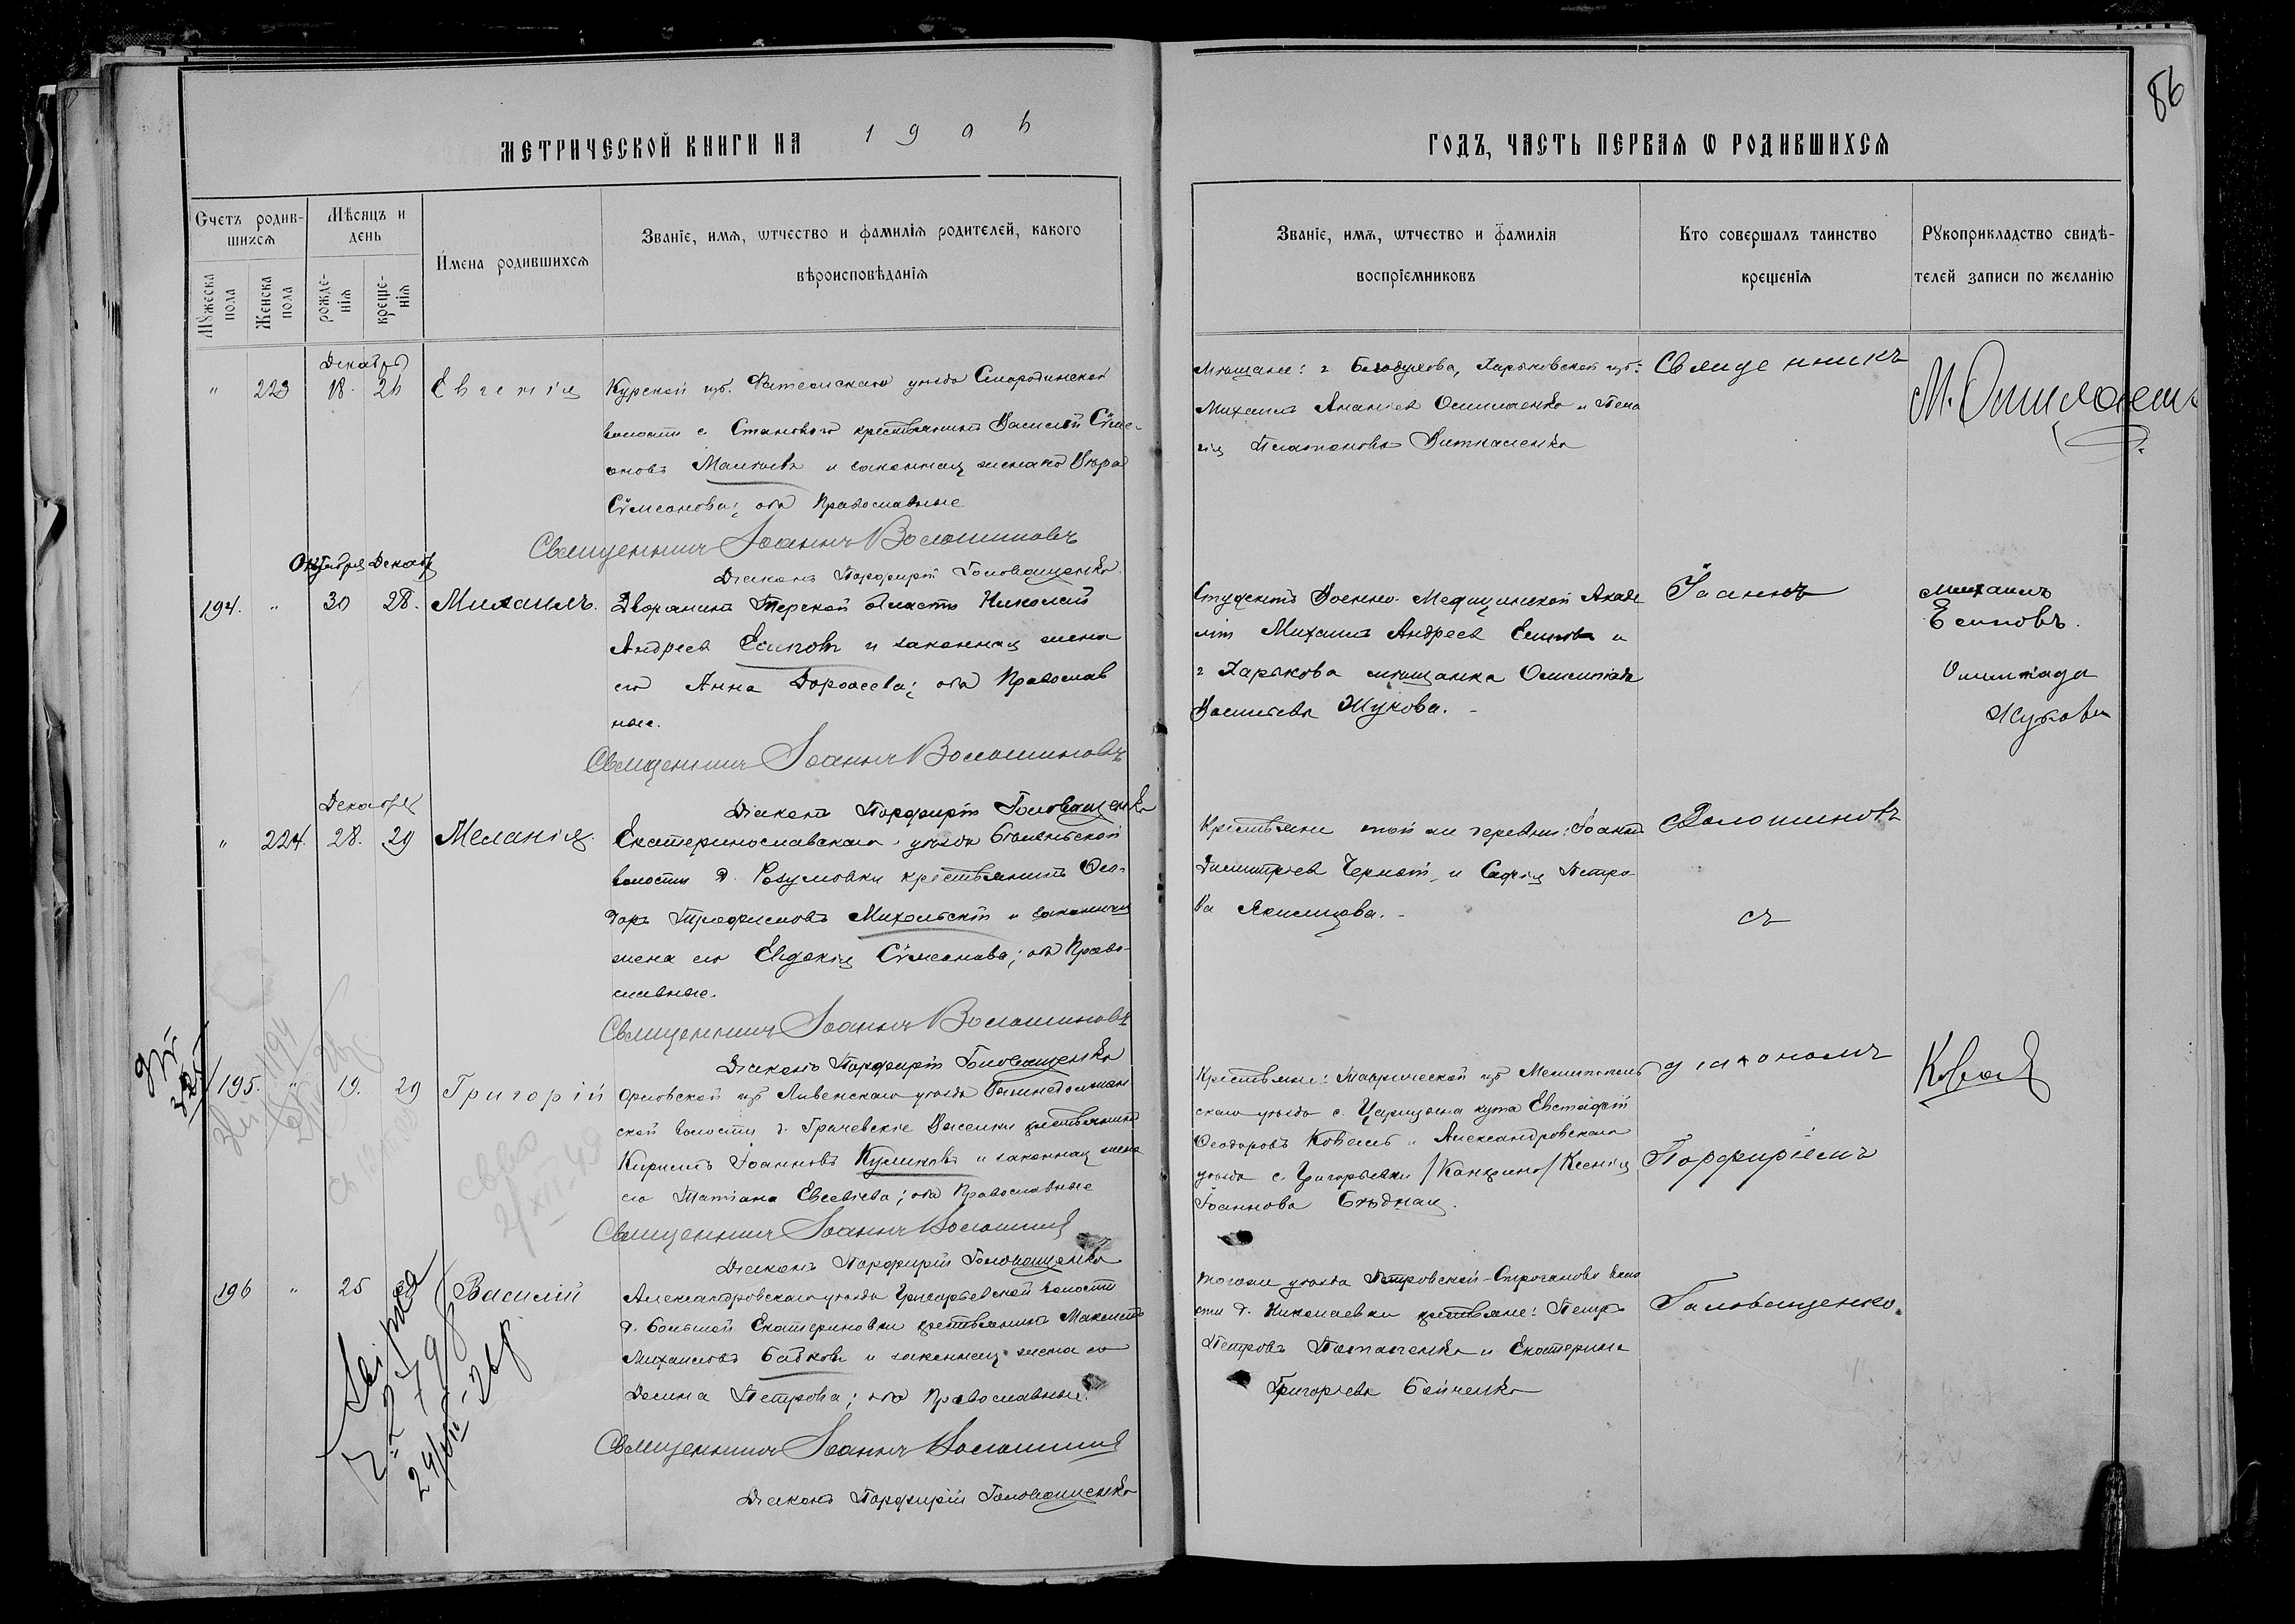 86
МЕТРИЧЕСКОЙ КНИГИ НА 1906
ГОДЪ, ЧАСТЬ ПЕРВАЯ Ѡ РОДИВШИХСЯ
Счетъ родившихся
Мѣсяцъ и день
Имена родившихся
Званіе, имя, ѡтчество и фамилія родителей, какого
вѣроисповѣданія
Мужеска пола
Женска пола
рожденія
крещенія
Званіе, имя, ѡтчество и фамилія
воспріемниковъ
Кто совершалъ таинство
крещенія
Рукоприкладство свидѣ-
телей записи по желанію
Декабрь
" 223 18. 26 Евгенія
Курской губ. Фатежскаго уѣзда Смородинской
волости с. Становаго крестьянинъ Василій Сѵме-
оновъ и законная жена его Вѣра
Сѵмеонова; оба Православные
Священникъ Іоаннъ Волошиновъ
Діаконъ Порфирій Головащенко
Мѣщане: г Богодухова, Харьковской губ:
Михаилъ Ананіевъ и Пела
гія Платонова
Священникъ
Октября Декабр
194. " 30 28. Михаилъ.
Дворянинъ Терской области Николай
Андреевъ Есиповъ и законная жена
его Анна Дороѳеева; оба Православ
ные.
Священникъ Іоаннъ Волошиновъ
Діаконъ Порфирій Головащенко
Студентъ Военно-Медицинской Акаде
міи Михаилъ Андреевъ Есиповъ и
г Харькова мѣщанка Олимпіада
Васильева Жукова. -
Іоаннъ
Михаилъ
Есиповъ.
Олимпіада
Жукова
Декабря
" 224. 28. 29 Меланія
Екатеринославскаго уѣзда Бѣленьской
волости д. Разумовки крестьянинъ Ѳео-
доръ Трофимовъ и законная
жена его Евдокія Сѵмеонова; оба Право-
славные.
Священникъ Іоаннъ Волошиновъ
Діаконъ Порфирій Головащенко
Крестьяне той же деревни: Іоаннъ
Димитріевъ Черный и Софія Петро-
ва Акимцова. -
Волошиновъ
съ
195. " 19. 29 Григорій
Орловской губ Ливенскаго уѣзда
ской волости д. Грачевскіе Выселки крестьянинъ
Кириллъ Іоанновъ Куликовъ и законная жена
его Татіана Евсевіева; оба Православные
Священникъ Іоаннъ Волошин
Діаконъ Порфирій Головащенко
Крестьяне: Таврической губ Мелитополь
скаго уѣзда с. Царицына кута Евстафій
Ѳеодоровъ Коваль и Александровскаго
уѣзда с. Григорьевки /Канкрино/ Ксенія
Іоаннова Бѣдная.
діакономъ
Порфиріемъ
Коваль
196 " 25 Василій
Александровскаго уѣзда Григорьевской волости
д. Большой Екатериновки крестьянинъ Максимъ
Михаиловъ Бабковъ и законная жена его
Домна Петрова; оба Православные.
Священникъ Іоаннъ Волошин
Діаконъ Порфирій Головащенко
того же уѣзда Петровской-Строганова воло
сти д. Николаевки крестьяне: Петръ
Петровъ Потапенко и Екатерина
Григорьева Бойченко
Головащенко.